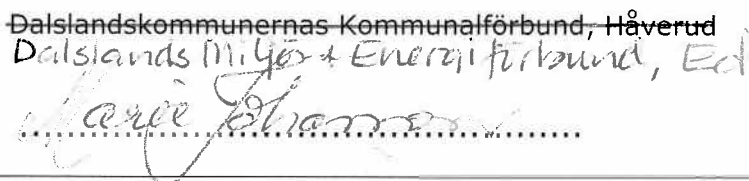 Dalslandskommunernas Kommunalförbund, Håverud
Dalslands Miljö + Energiförbund, Ed
Marie Johansson